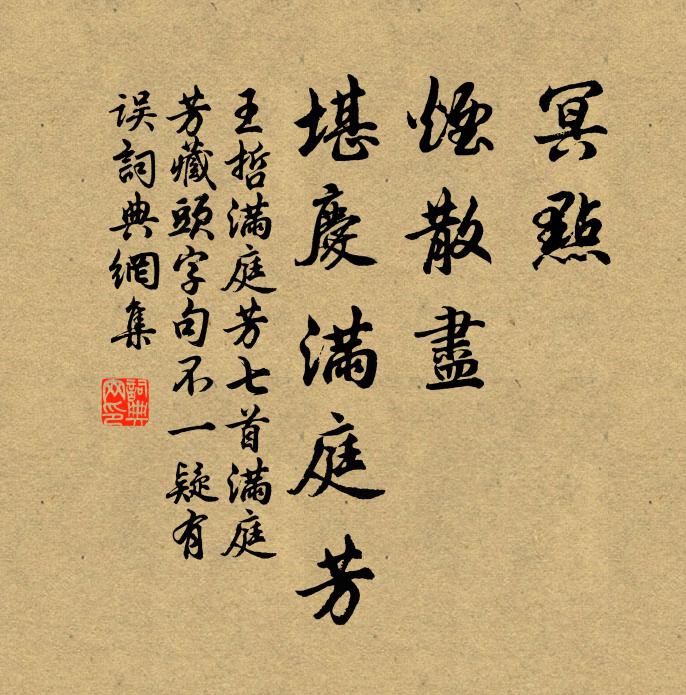 冥點
煙散盡
堪慶滿庭芳
王哲滿庭芳七首滿庭
芳藏頭字句不一疑有
误詞典網集
詞典
网印